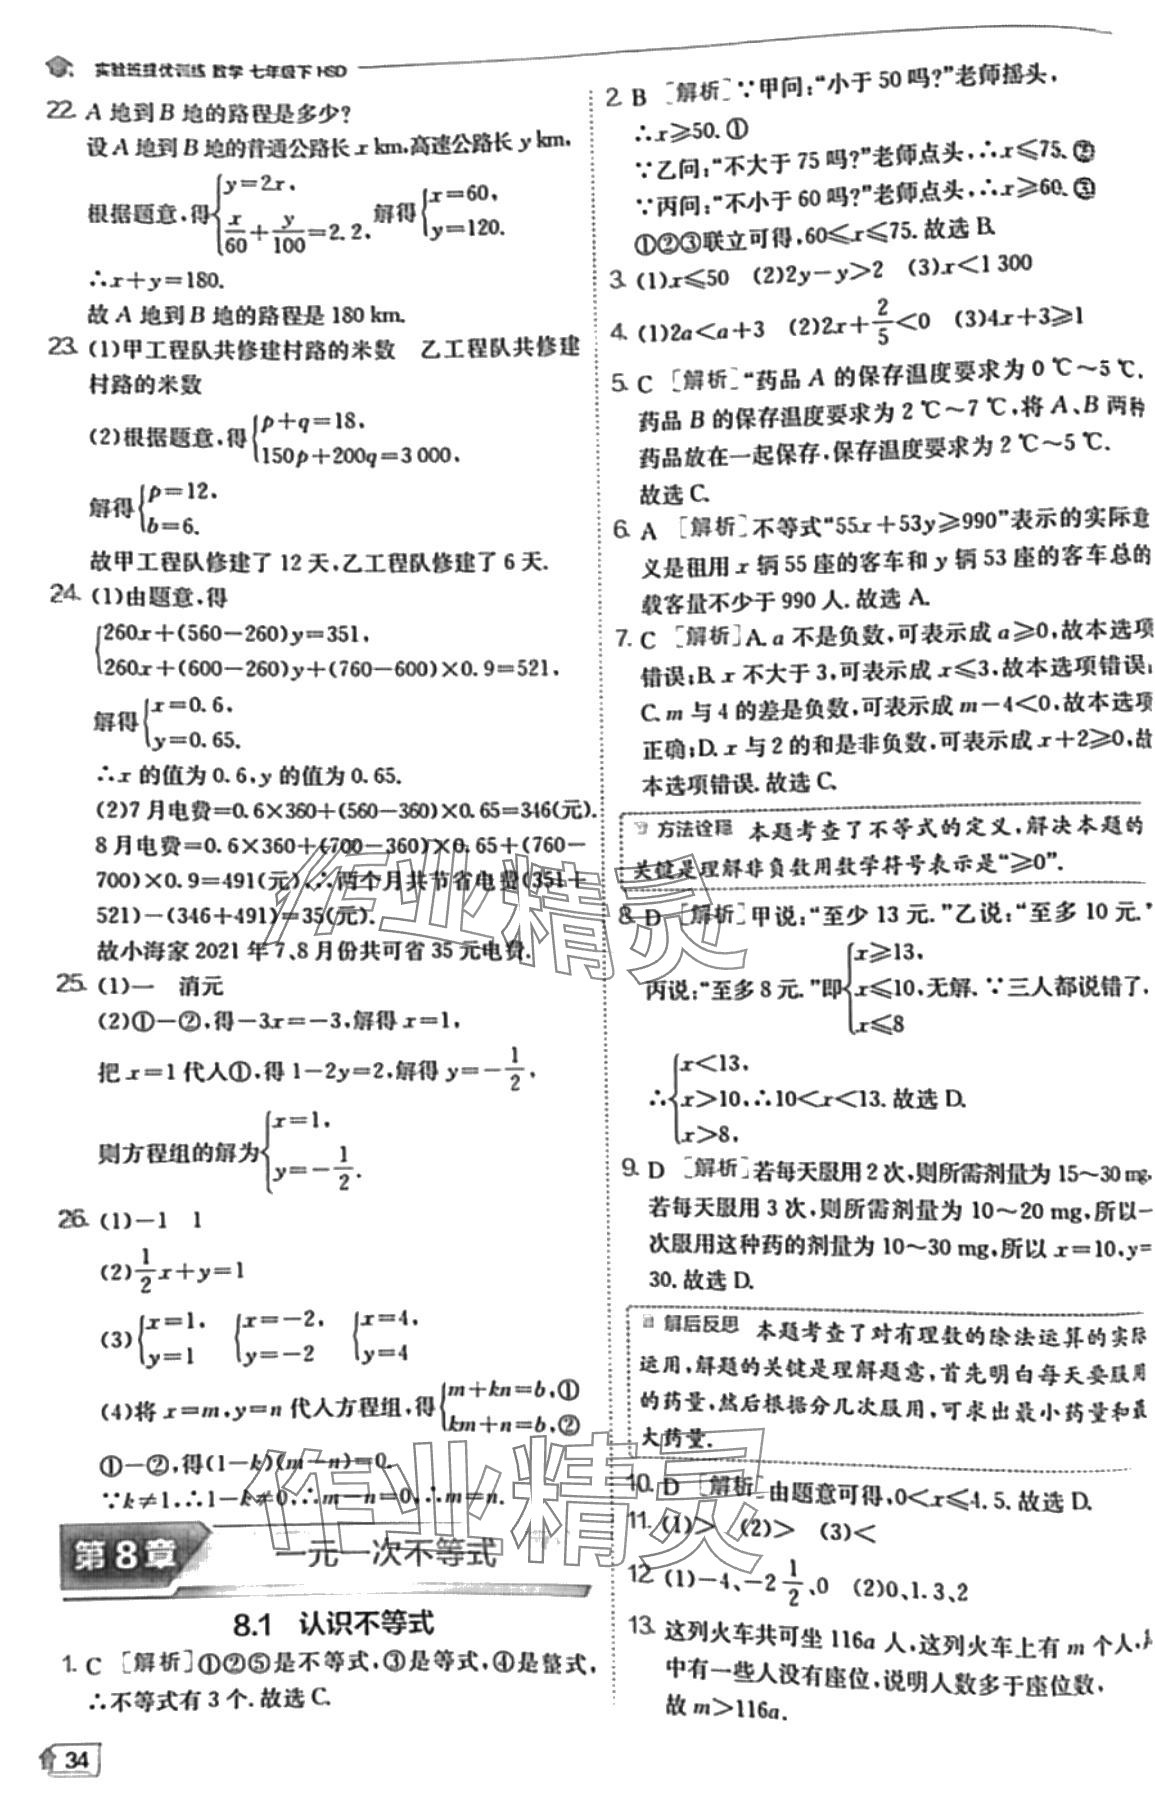 实验班提优训练 数学 七年级下 HSD
22. A 地到 B 地的路程是多少?
设 A 地到 B 地的普通公路长 x km,高速公路长 y km,
根据题意,得{y=2x, x/60+y/100=2.2, 解得{x=60, y=120.
∴x+y=180.
故 A 地到 B 地的路程是 180 km.
23. (1)甲工程队共修建村路的米数 乙工程队共修建
村路的米数
(2)根据题意,得{p+q=18, 150p+200q=3 000,
解得{p=12, b=6.
故甲工程队修建了 12 天,乙工程队修建了 6 天.
24. (1)由题意,得
{260x+(560-260)y=351,
260x+(600-260)y+(760-600)×0.9=521,
解得{x=0.6, y=0.65.
∴x 的值为 0.6,y 的值为 0.65.
(2)7 月电费=0.6×360+(560-360)×0.65=346(元).
8 月电费=0.6×360+(700-360)×0.65+(760-
700)×0.9=491(元),∴两个月共节省电费(351+
521)-(346+491)=35(元).
故小海家 2021 年 7、8 月份共可省 35 元电费.
25. (1)一 消元
(2)①-②,得-3x=-3,解得 x=1,
把 x=1 代入①,得 1-2y=2,解得 y=-1/2,
则方程组的解为{x=1, y=-1/2.
26. (1)-1 1
(2)1/2x+y=1
(3){x=1, y=1 {x=-2, y=-2 {x=4, y=4
(4)将 x=m,y=n 代入方程组,得{m+kn=b,① km+n=b,②
①-②,得(1-k)(m-n)=0.
∵k≠1,∴1-k≠0,∴m-n=0,∴m=n.
第 8 章 一元一次不等式
8.1 认识不等式
1. C [解析]①②⑤是不等式,③是等式,④是整式,
∴不等式有 3 个.故选 C.
34
2. B [解析]∵甲问:“小于 50 吗?”老师摇头,
∴x⩾50.①
∵乙问:“不大于 75 吗?”老师点头,∴x⩽75.②
∵丙问:“不小于 60 吗?”老师点头,∴x⩾60.③
①②③联立可得,60⩽x⩽75.故选 B.
3. (1)x⩽50 (2)2y-y>2 (3)x<1 300
4. (1)2a<a+3 (2)2x+2/5<0 (3)4x+3⩾1
5. C [解析]“药品 A 的保存温度要求为 0 ℃~5 ℃,
药品 B 的保存温度要求为 2 ℃~7 ℃,将 A、B 两种
药品放在一起保存,保存温度要求为 2 ℃~5 ℃.
故选 C.
6. A [解析]不等式“55x+53y⩾990”表示的实际意
义是租用 x 辆 55 座的客车和 y 辆 53 座的客车总的
载客量不少于 990 人.故选 A.
7. C [解析]A.a 不是负数,可表示成 a⩾0,故本选项
错误;B.x 不大于 3,可表示成 x⩽3,故本选项错误;
C.m 与 4 的差是负数,可表示成 m-4<0,故本选项
正确;D.x 与 2 的和是非负数,可表示成 x+2⩾0,故
本选项错误.故选 C.
方法诠释 本题考查了不等式的定义,解决本题的
关键是理解非负数用数学符号表示是“⩾0”.
8. D [解析]甲说:“至少 13 元.”乙说:“至多 10 元.”
丙说:“至多 8 元.”即{x⩾13, x⩽10, x⩽8 无解.∵三人都说错了,
∴{x<13, x>10, x>8, ∴10<x<13.故选 D.
9. D [解析]若每天服用 2 次,则所需剂量为 15~30 mg,
若每天服用 3 次,则所需剂量为 10~20 mg,所以一
次服用这种药的剂量为 10~30 mg,所以 x=10,y=
30.故选 D.
解后反思 本题考查了对有理数的除法运算的实际
运用,解题的关键是理解题意,首先明白每天要服用
的药量,然后根据分几次服用,可求出最小药量和最
大药量.
10. D [解析]由题意可得,0<x⩽4.5.故选 D.
11. (1)> (2)> (3)<
12. (1)-4、-2 1/2、0 (2)0、1、3、2
13. 这列火车共可坐 116a 人,这列火车上有 m 个人,
中有一些人没有座位,说明人数多于座位数,
故 m>116a.
作业精灵
作业精灵